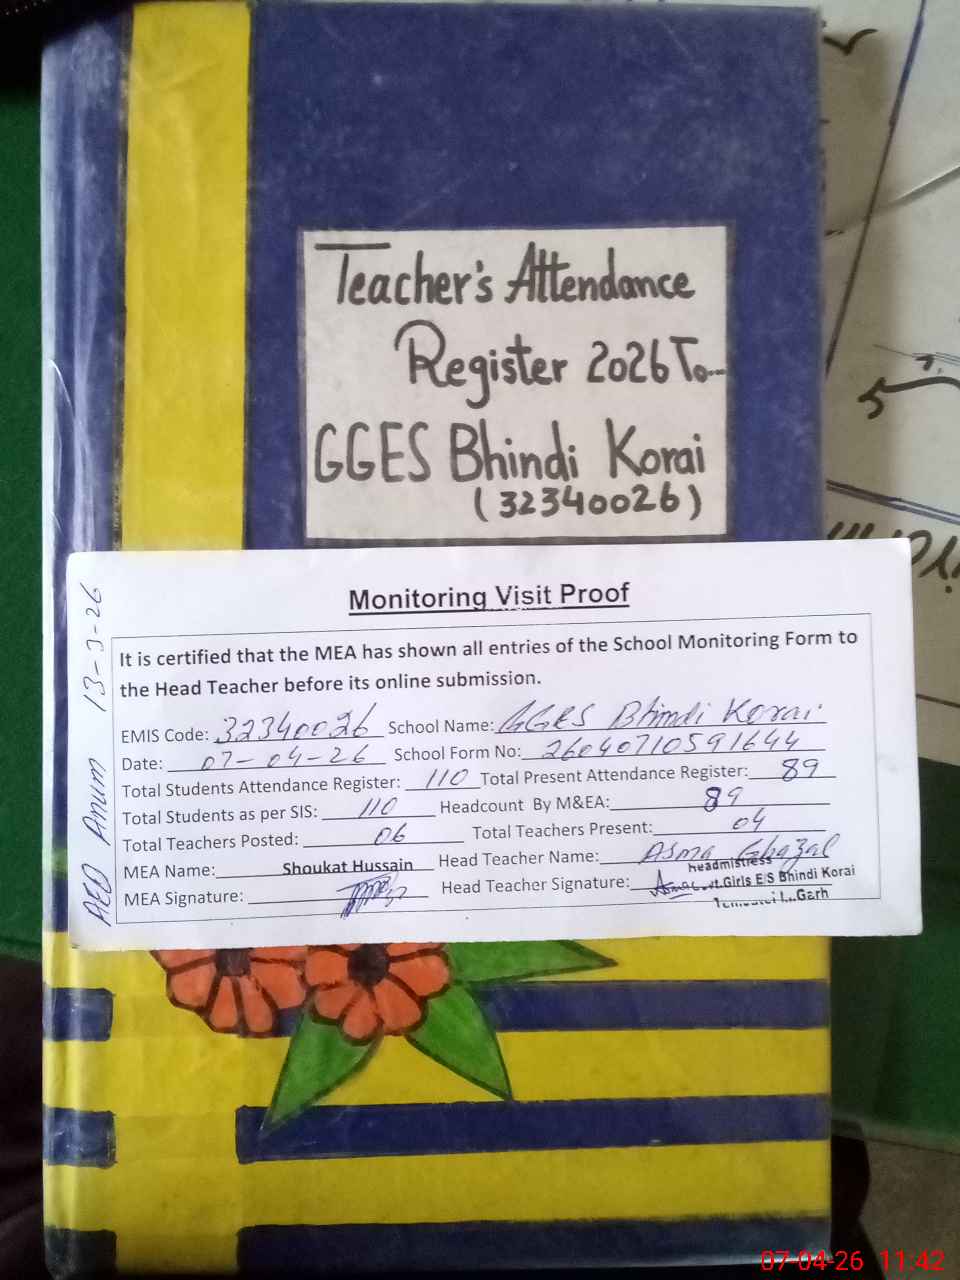 Teacher's Attendance
Register 2026 To...
GGES Bhindi Korai
(32340026)
Monitoring Visit Proof
It is certified that the MEA has shown all entries of the School Monitoring Form to
the Head Teacher before its online submission.
EMIS Code: 32340026 School Name: GGES Bhindi Korai
Date: 07-04-26 School Form No: 26040710591644
Total Students Attendance Register: 110 Total Present Attendance Register: 89
Total Students as per SIS: 110 Headcount By M&EA: 89
Total Teachers Posted: 06 Total Teachers Present: 04
MEA Name: Shoukat Hussain Head Teacher Name: Asma Ghazal
MEA Signature: Head Teacher Signature:
Headmistress
Govt.Girls E/S Bhindi Korai
Garh
AEO Anum 13-3-26
07-04-26 11:42